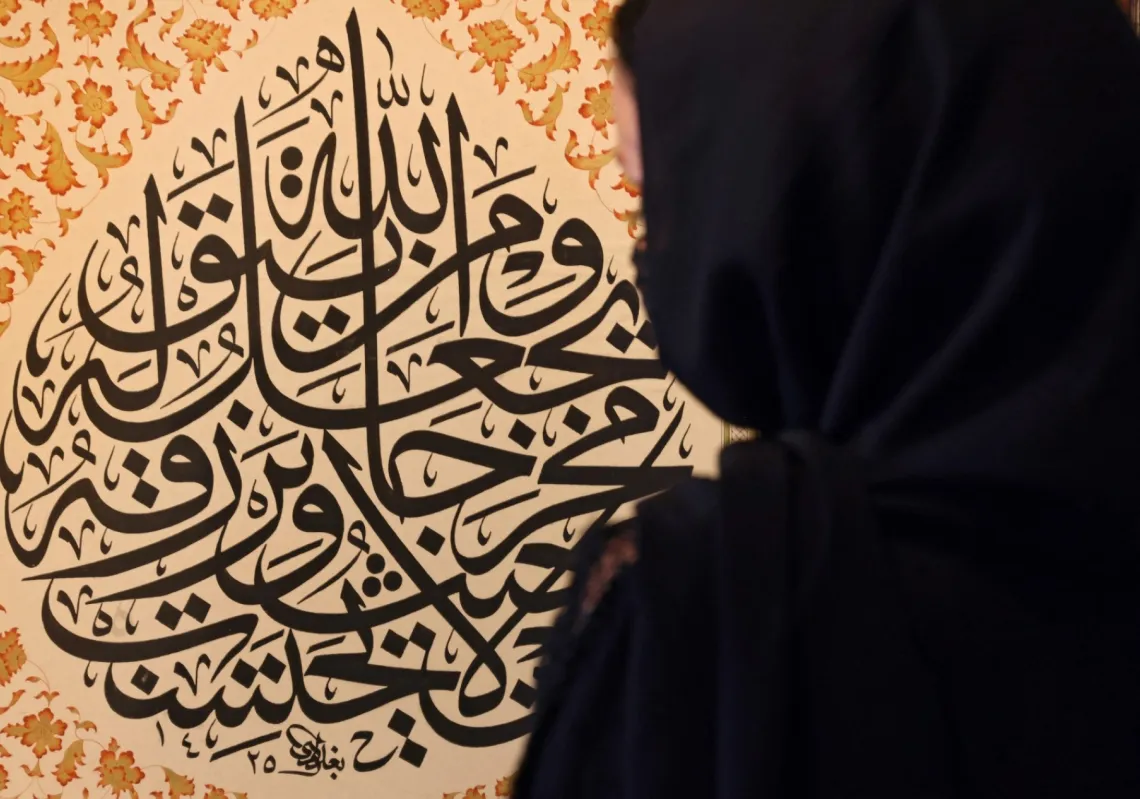 ومن يتق الله
يجعل له
مخرجا
ويرزقه
من حيث
لا يحتسب
١٤٢٥